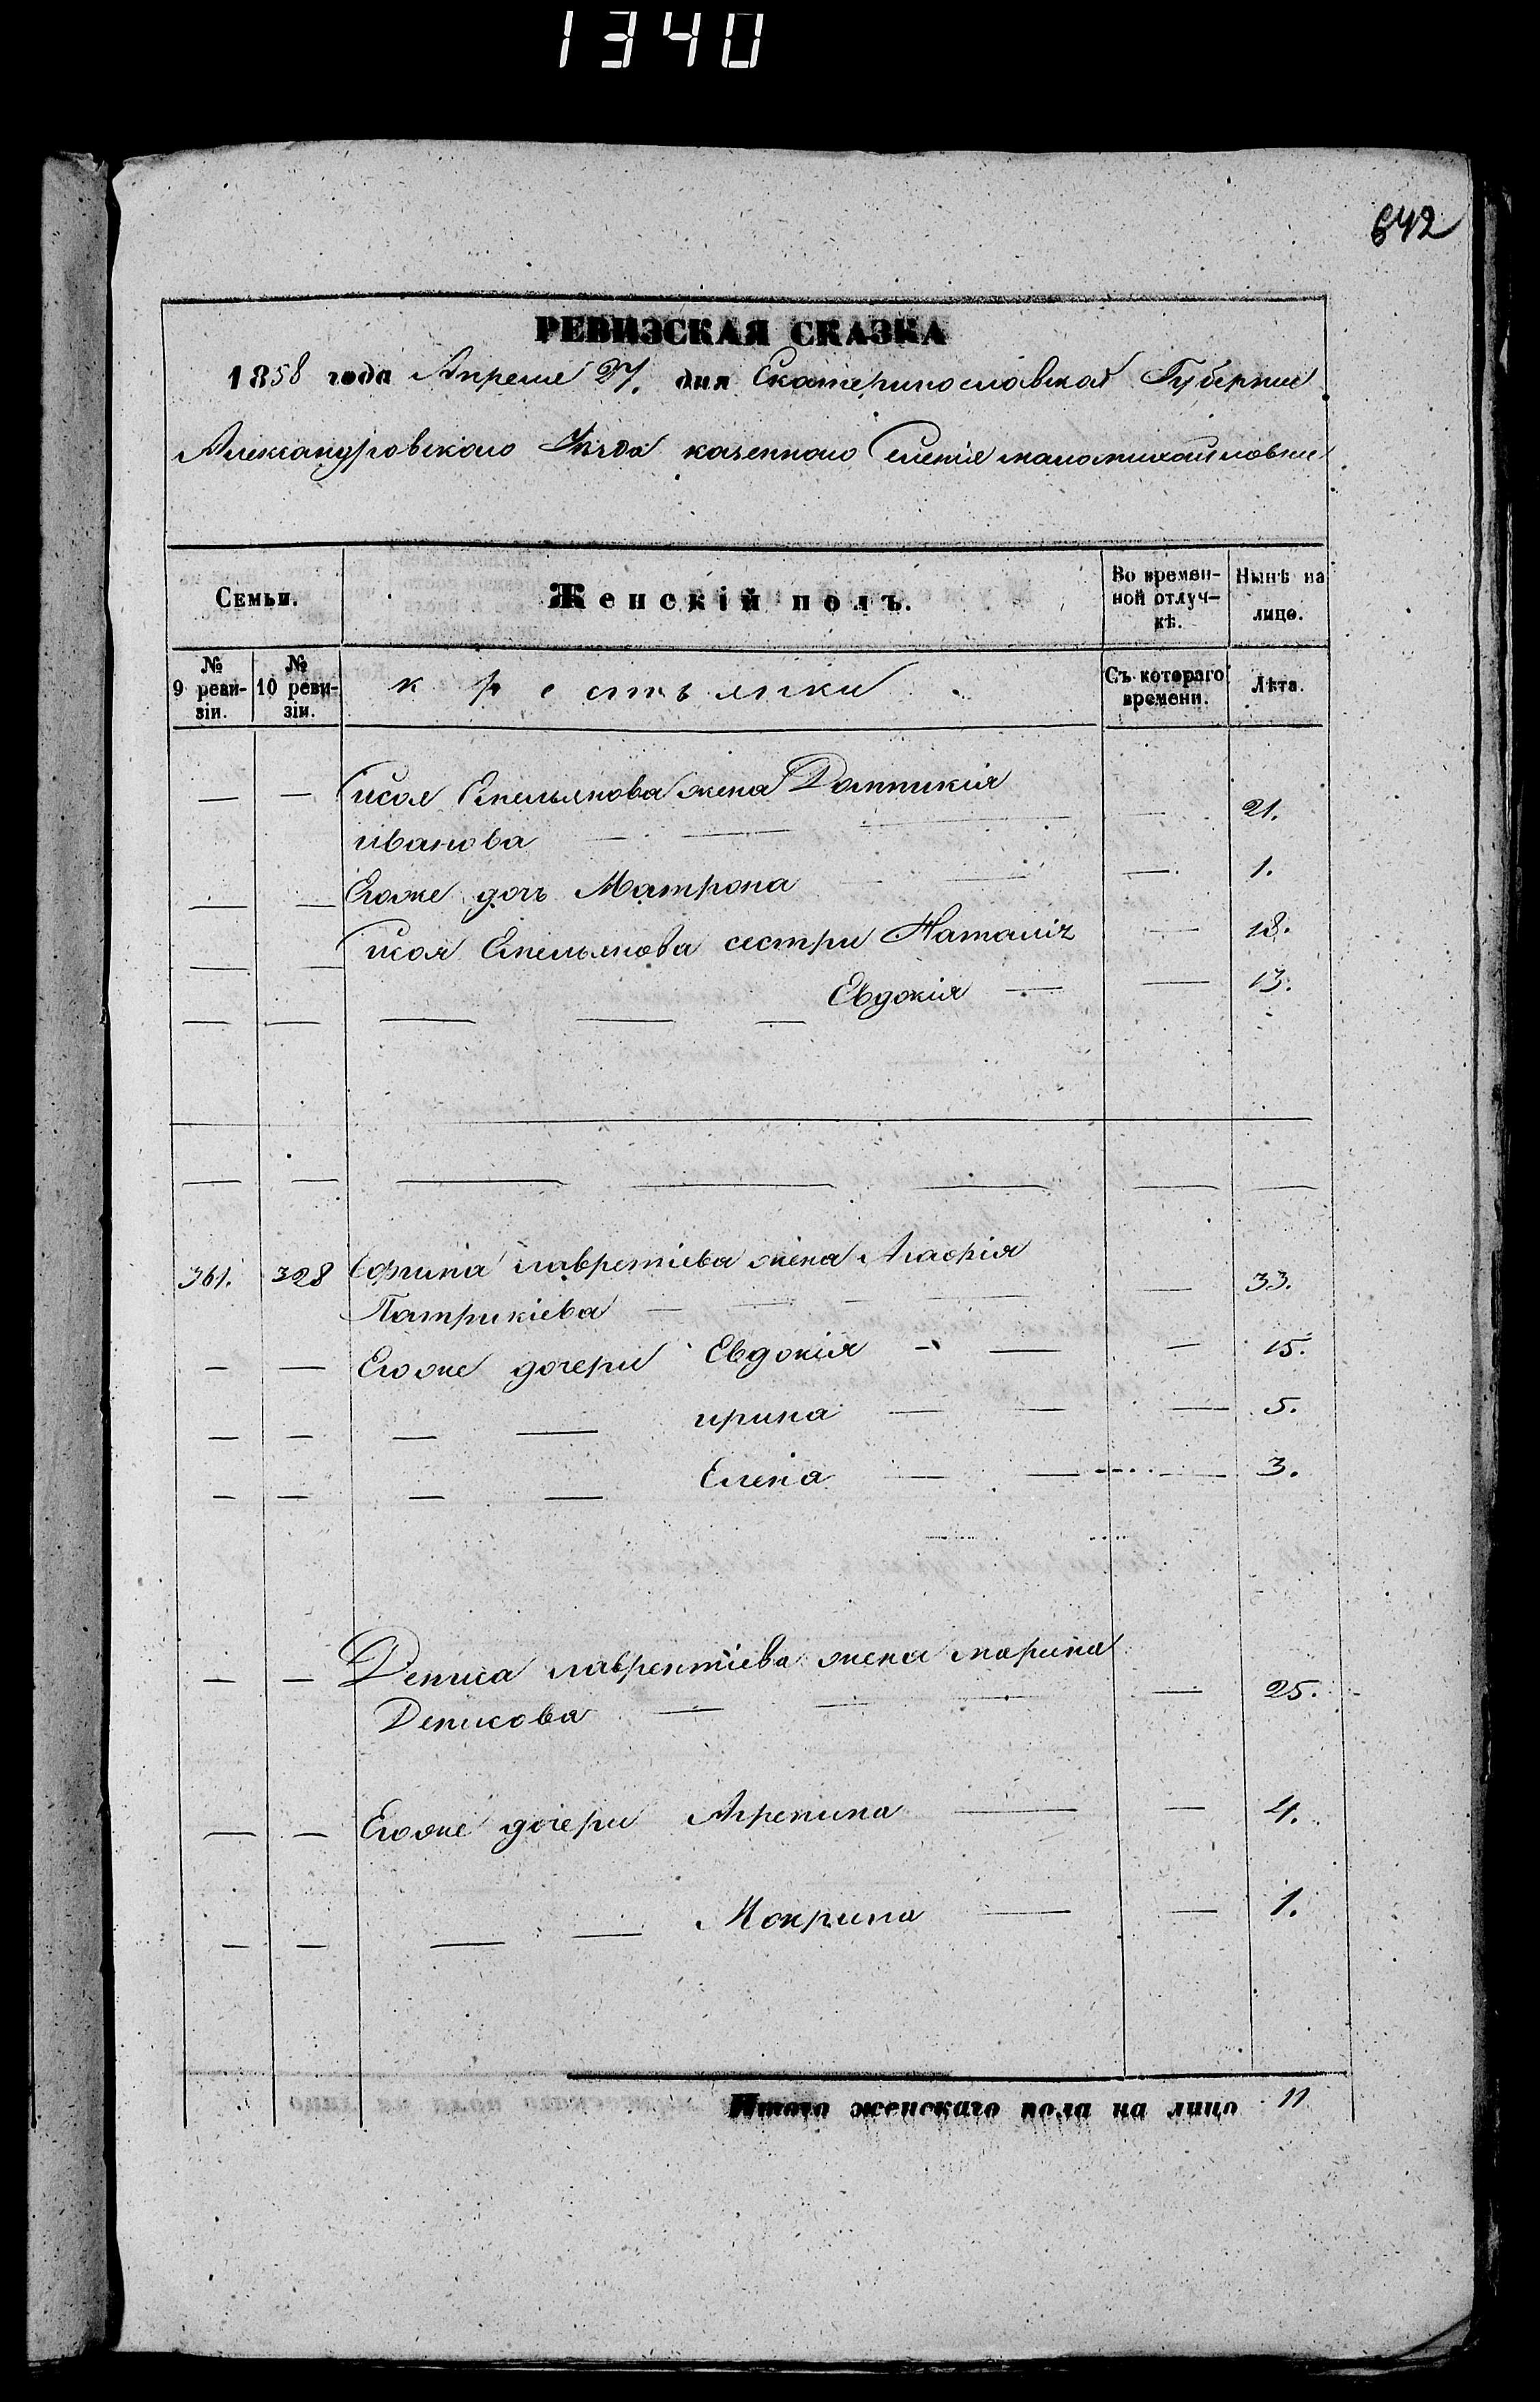 1340
642
РЕВИЗСКАЯ СКАЗКА
1858 года Апреля 27. дня Екатеринославской Губернии
Александровского Уезда казенного Селенія маломихайловки
Семьи. Женскій полъ. Во времен-ной отлуч-кѣ. Нынѣ на лицо.
№ 9 реви-зіи. № 10 реви-зіи. крестьянки Съ котораго времени. Лѣта.
— — исая Емельянова жена Домникія
иванова — — — — 21.
— — Егоже дочь Матрона — — — 1.
— — исая Емельянова сестри Наталія — 18.
— — — — — Евдокія — — 13.
— — — — — — —
361. 328 Софина лаврентіева жена Агафія
Патрикіева — — — — — 33.
— — Егоже дочери Евдокія - — — 15.
— — — — ирина — — — 5.
— — — — Елена — — — 3.
— — Дениса лаврентіева жена марина
Денисова — — — — 25.
— — Егоже дочери Агрепина — — 4.
— — — — Мокрина — — 1.
Итого женскаго пола на лицо 11